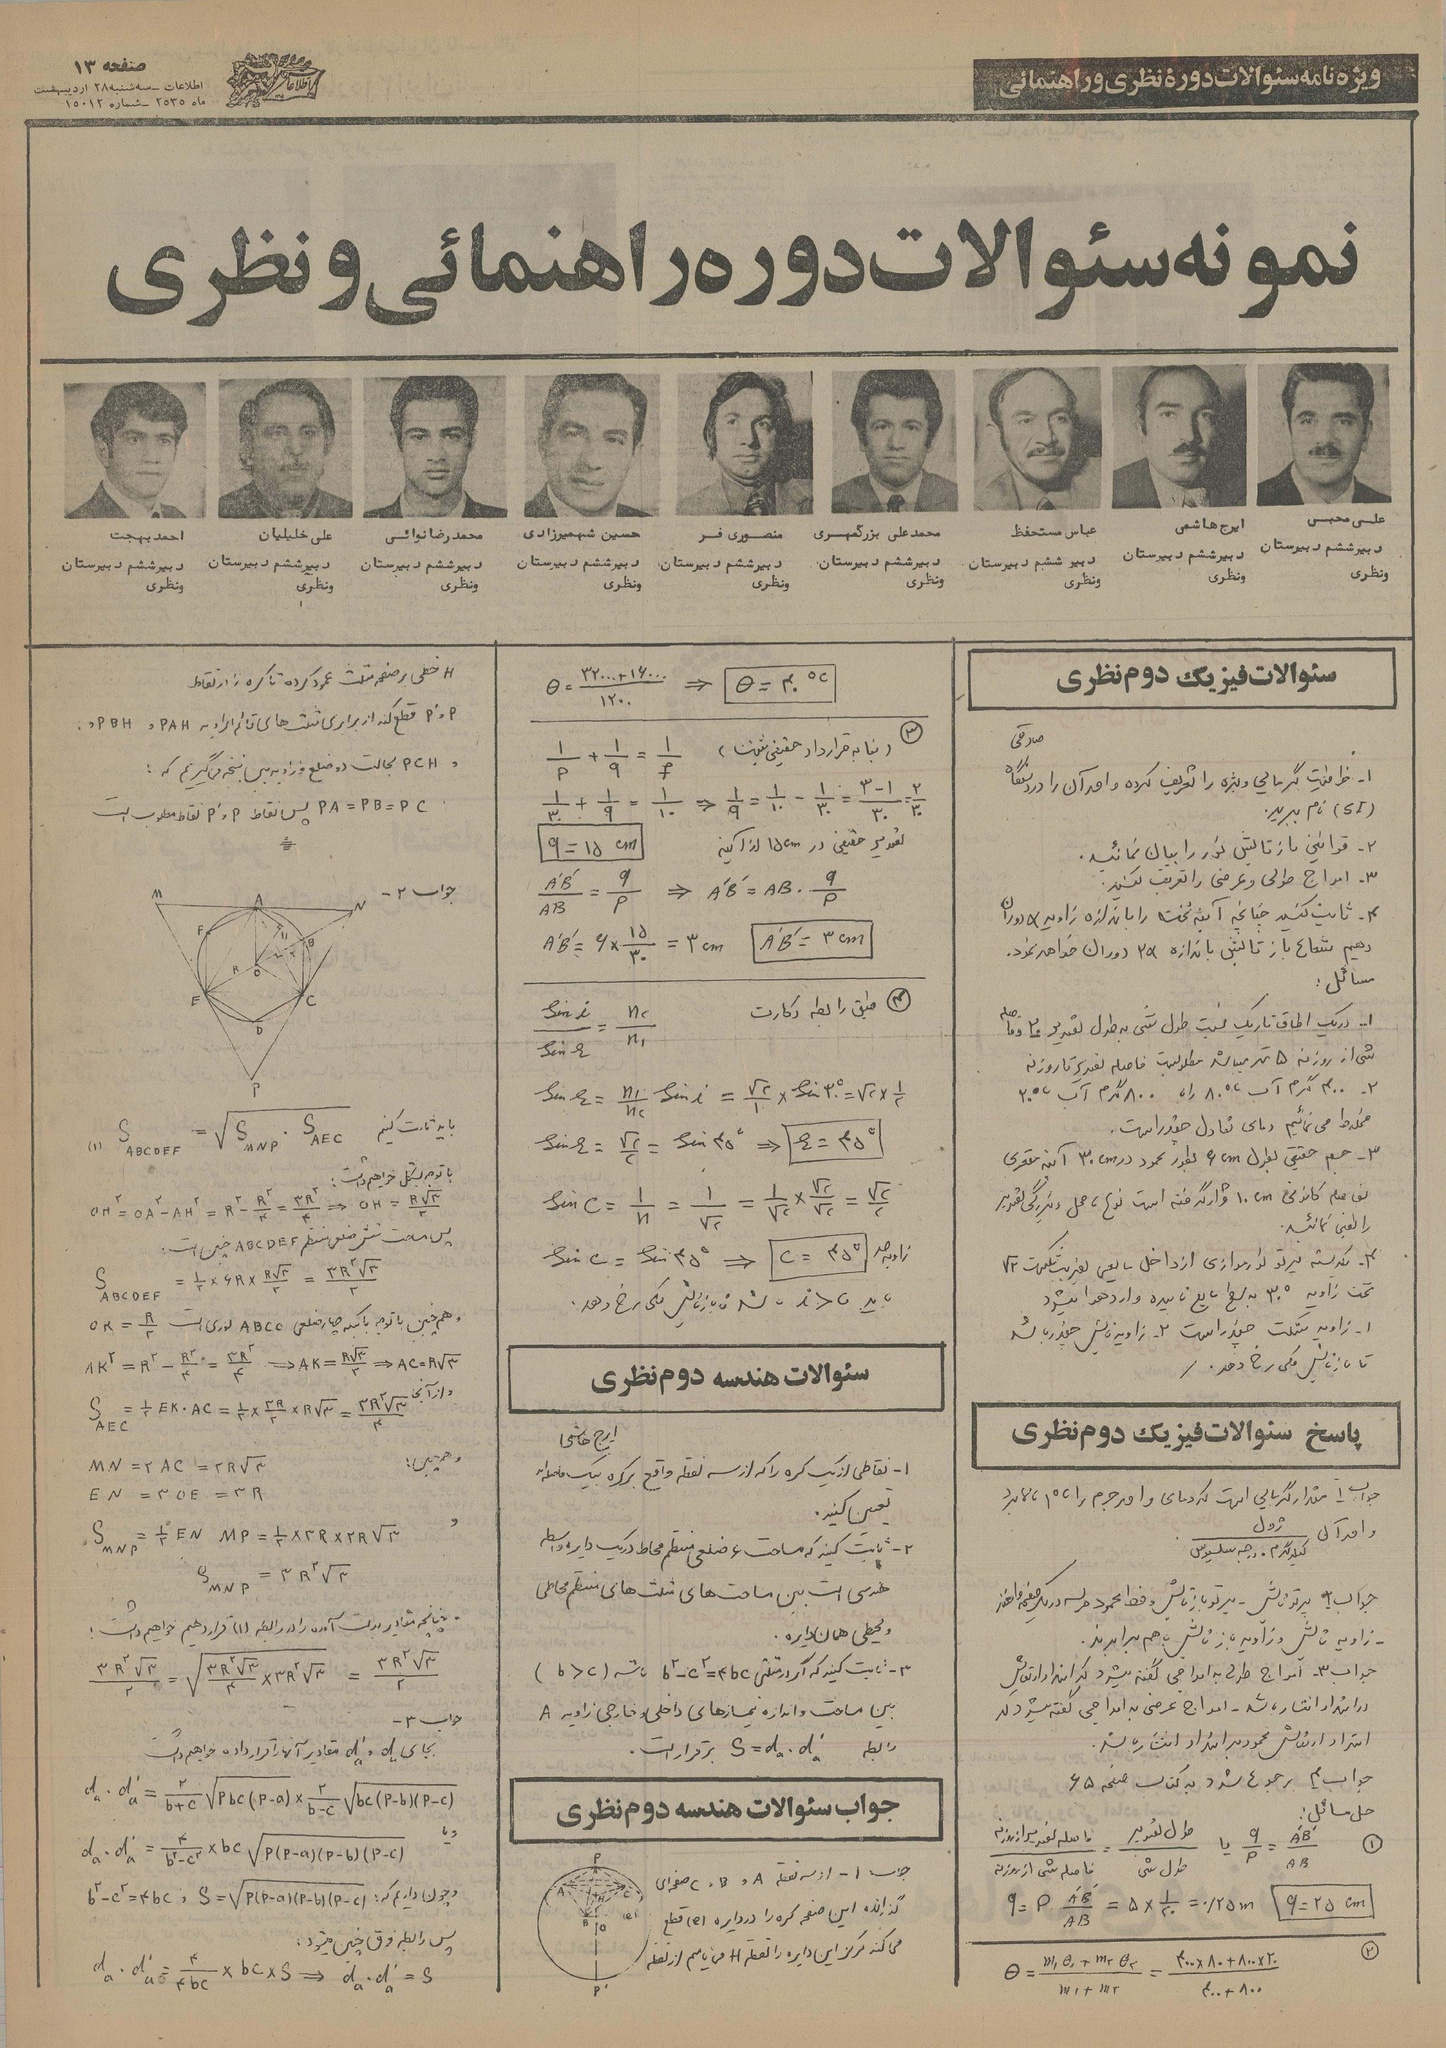 ویژه نامه سئوالات دورهٔ نظری و راهنمائی
صفحه ۱۳
اطلاعات ـ سه شنبه ۲۸ اردیبهشت
ماه ۲۵۳۵ ـ شماره ۱۵۰۱۲
نمونه سئوالات دوره راهنمائی و نظری
علی محبی
دبیر ششم دبیرستان
ونظری
ایرج هاشمی
دبیر ششم دبیرستان
ونظری
عباس مستحفظ
دبیر ششم دبیرستان
ونظری
محمدعلی بزرگمهری
دبیر ششم دبیرستان
ونظری
منصوری فر
دبیر ششم دبیرستان
ونظری
حسین شهمیرزادی
دبیر ششم دبیرستان
ونظری
محمدرضا نوائی
دبیر ششم دبیرستان
ونظری
علی خلیلیان
دبیر ششم دبیرستان
ونظری
احمد بهجت
دبیر ششم دبیرستان
ونظری
سئوالات فیزیک دوم نظری
صادقی
۱- ظرفیت گرمایی ویژه را تعریف کرده واحد آن را در دستگاه
(SI) نام ببرید.
۲- قوانین باز تابش نور را بیان نمائید.
۳- امواج طولی وعرضی را تعریف کنید.
۴- ثابت کنید چنانچه آینه تخت را باندازه زاویه α دوران
دهیم شعاع باز تابش باندازه ۲α دوران خواهد نمود.
مسائل:
۱- در یک اطاق تاریک نسبت طول شئی به طول تصویر ۲۰ و فاصله
شی از روزنه ۵ متر میباشد مطلوبست فاصله تصویر تا روزنه
۲- ۴۰۰ گرم آب ۸۰°C را با ۸۰۰ گرم آب ۲۰°C
مخلوط می نمائیم دمای تعادل چقدر است.
۳- جسم حقیقی بطول ۶ cm بطور عمود در ۳۰ cm آینه مقعری
بفاصله کانونی ۱۰ cm قرار گرفته است نوع، محل و بزرگی تصویر
را تعیین نمائید.
۴- یکدسته پرتو نور موازی از داخل مایعی بضریب شکست √۲
تحت زاویه ۳۰° به سطح مایع تابیده وارد هوا میشود
۱- زاویه شکست چقدر است ۲- زاویه تابش چقدر باشد
تا باز تابش کلی رخ دهد.
پاسخ سئوالات فیزیک دوم نظری
جواب ۱ مقدار گرمایی است که دمای واحد جرم را ۱°C بالا ببرد
واحد آن ژول / کیلوگرم . درجه سلسیوس
جواب ۲ پرتو تابش - پرتو باز تابش و خط عمود هر سه در یک صفحه واقعند
ـ زاویه تابش و زاویه باز تابش با هم برابرند.
جواب ۳- امواج طولی به امواجی گفته میشود که امتداد ارتعاش
در امتداد انتشار باشد - امواج عرضی به امواجی گفته میشود که
امتداد ارتعاش عمود بر امتداد انتشار باشد.
جواب ۴ رجوع شود به کتاب صفحه ۶۵
حل مسائل:
① A'B'/AB = q/p یا طول تصویر / طول شئی = فاصله تصویر از روزنه / فاصله شئی از روزنه
q = P A'B'/AB = ۵ × ۱/۲۰ = ۰/۲۵ m q = ۲۵ cm
② θ = (m₁θ₁ + m₂θ₂)/(m₁ + m₂) = (۴۰۰×۸۰ + ۸۰۰×۲۰)/(۴۰۰ + ۸۰۰)
θ = (۳۲۰۰۰ + ۱۶۰۰۰)/۱۲۰۰ ⇒ θ = ۴۰°C
③ (بنا به قرارداد حقیقی مثبت) ۱/P + ۱/q = ۱/f
۱/۳۰ + ۱/q = ۱/۱۰ ⇒ ۱/q = ۱/۱۰ - ۱/۳۰ = (۳-۱)/۳۰ = ۲/۳۰
تصویر حقیقی در ۱۵ cm از آینه q = ۱۵ cm
A'B'/AB = q/P ⇒ A'B' = AB . q/P
A'B' = ۶ × ۱۵/۳۰ = ۳ cm A'B' = ۳ cm
④ طبق رابطه دکارت Sin i / Sin r = n₂/n₁
Sin r = n₁/n₂ Sin i = √۲/۱ × Sin ۳۰° = √۲ × ۱/۲
Sin r = √۲/۲ = Sin ۴۵° ⇒ r = ۴۵°
Sin C = ۱/n = ۱/√۲ = ۱/√۲ × √۲/√۲ = √۲/۲
زاویه حد Sin C = Sin ۴۵° ⇒ C = ۴۵°
باید i > C باشد تا باز تابش کلی رخ دهد.
سئوالات هندسه دوم نظری
ایرج هاشمی
۱- نقاطی از یک کره را که از سه نقطه واقع بر کره بیک فاصله اند
تعیین کنید.
۲- ثابت کنید که مساحت ۶ ضلعی منتظم محاط در یک دایره واسطه
هندسی است بین مساحت های مثلث های منتظم محاطی
و محیطی همان دایره.
۳- ثابت کنید که اگر در مثلثی b²-c²=۴bc باشد (b > c)
بین مساحت و اندازه نیمسازهای داخلی و خارجی زاویه A
رابطه S = dₐ . d'ₐ برقرار است.
جواب سئوالات هندسه دوم نظری
جواب ۱- از سه نقطه A و B و C صفحه ای
گذرانده این صفحه کره را در دایره (C) قطع
می کند مرکز این دایره را نقطه H می نامیم از نقطه
P
A
C
H
B
O
(C)
P'
H خطی بر صفحه مثلث عمود کرده تا کره را در نقاط
P و P' قطع کند از برابری مثلث های قائم الزاویه PAH و PBH و
و PCH بحالت دو ضلع و زاویه بین نتیجه می گیریم که:
PA = PB = PC پس نقاط P و P' نقاط مطلوب است
جواب ۲-
M
A
N
F
H
B
R
O
K
E
C
D
P
باید ثابت کنیم S ABCDEF = √(S MNP . S AEC) (۱)
با توجه بشکل خواهیم داشت:
OH² = OA² - AH² = R² - R²/۴ = ۳R²/۴ ⇒ OH = R√۳/۲
پس مساحت شش ضلعی منتظم ABCDEF چنین است:
S ABCDEF = ۱/۲ × ۶R × R√۳/۲ = ۳R²√۳/۲
و همچنین با توجه باینکه چهار ضلعی ABCO لوزی است OK = R/۲
AK² = R² - R²/۴ = ۳R²/۴ ⇒ AK = R√۳/۲ ⇒ AC = R√۳
و از آنجا S AEC = ۱/۲ EK . AC = ۱/۲ × ۳R/۲ × R√۳ = ۳R²√۳/۴
و همچنین: MN = ۲AC = ۲R√۳
EN = ۳OE = ۳R
و S MNP = ۱/۲ EN MP = ۱/۲ × ۳R × ۲R√۳
S MNP = ۳R²√۳
چنانچه مقادیر بدست آمده را در رابطه (۱) قرار دهیم خواهیم داشت:
۳R²√۳/۲ = √(۳R²√۳/۴ × ۳R²√۳) = ۳R²√۳/۲
جواب ۳-
بجای dₐ و d'ₐ مقادیر آنها را قرار داده خواهیم داشت
dₐ . d'ₐ = ۲/(b+c) √(Pbc(P-a)) × ۲/(b-c) √(bc(P-b)(P-c))
و یا dₐ . d'ₐ = ۴/(b²-c²) × bc √(P(P-a)(P-b)(P-c))
و چون داریم که: S = √(P(P-a)(P-b)(P-c)) و b²-c² = ۴bc
پس رابطه فوق چنین میشود:
dₐ . d'ₐ = ۴/۴bc × bc × S ⇒ dₐ . d'ₐ = S